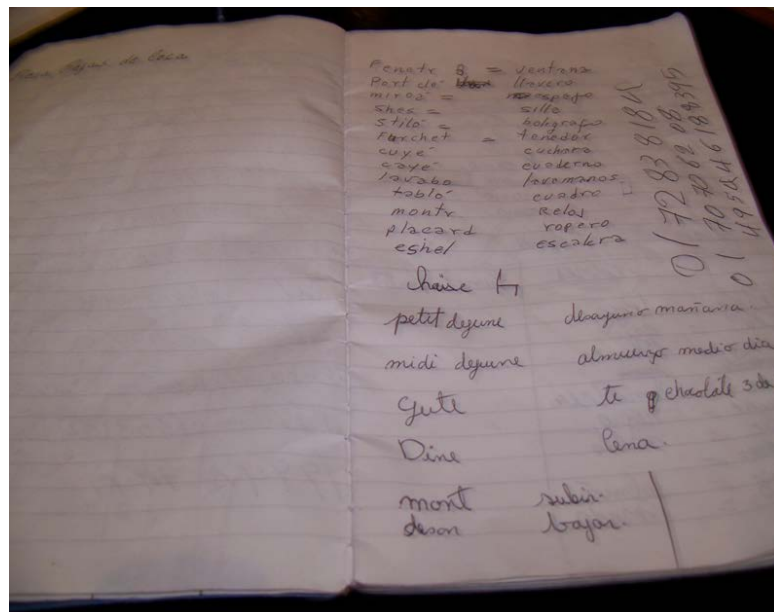 Penatr B = ventana
Port de llavero
miroz = espejo
shes = silla
stiló = boligrafo
Furchet = tenedor
cuyé cuchara
cayé cuaderno
lavabo lavamanos
tabló cuadro
montr Reloj
placard ropero
eshel escalera
chaise
petit dejune desayuno mañana.
midi dejune almuerzo medio dia
Gute te chocolate 3 de
Dine Cena.
mont subir.
deson bajar.